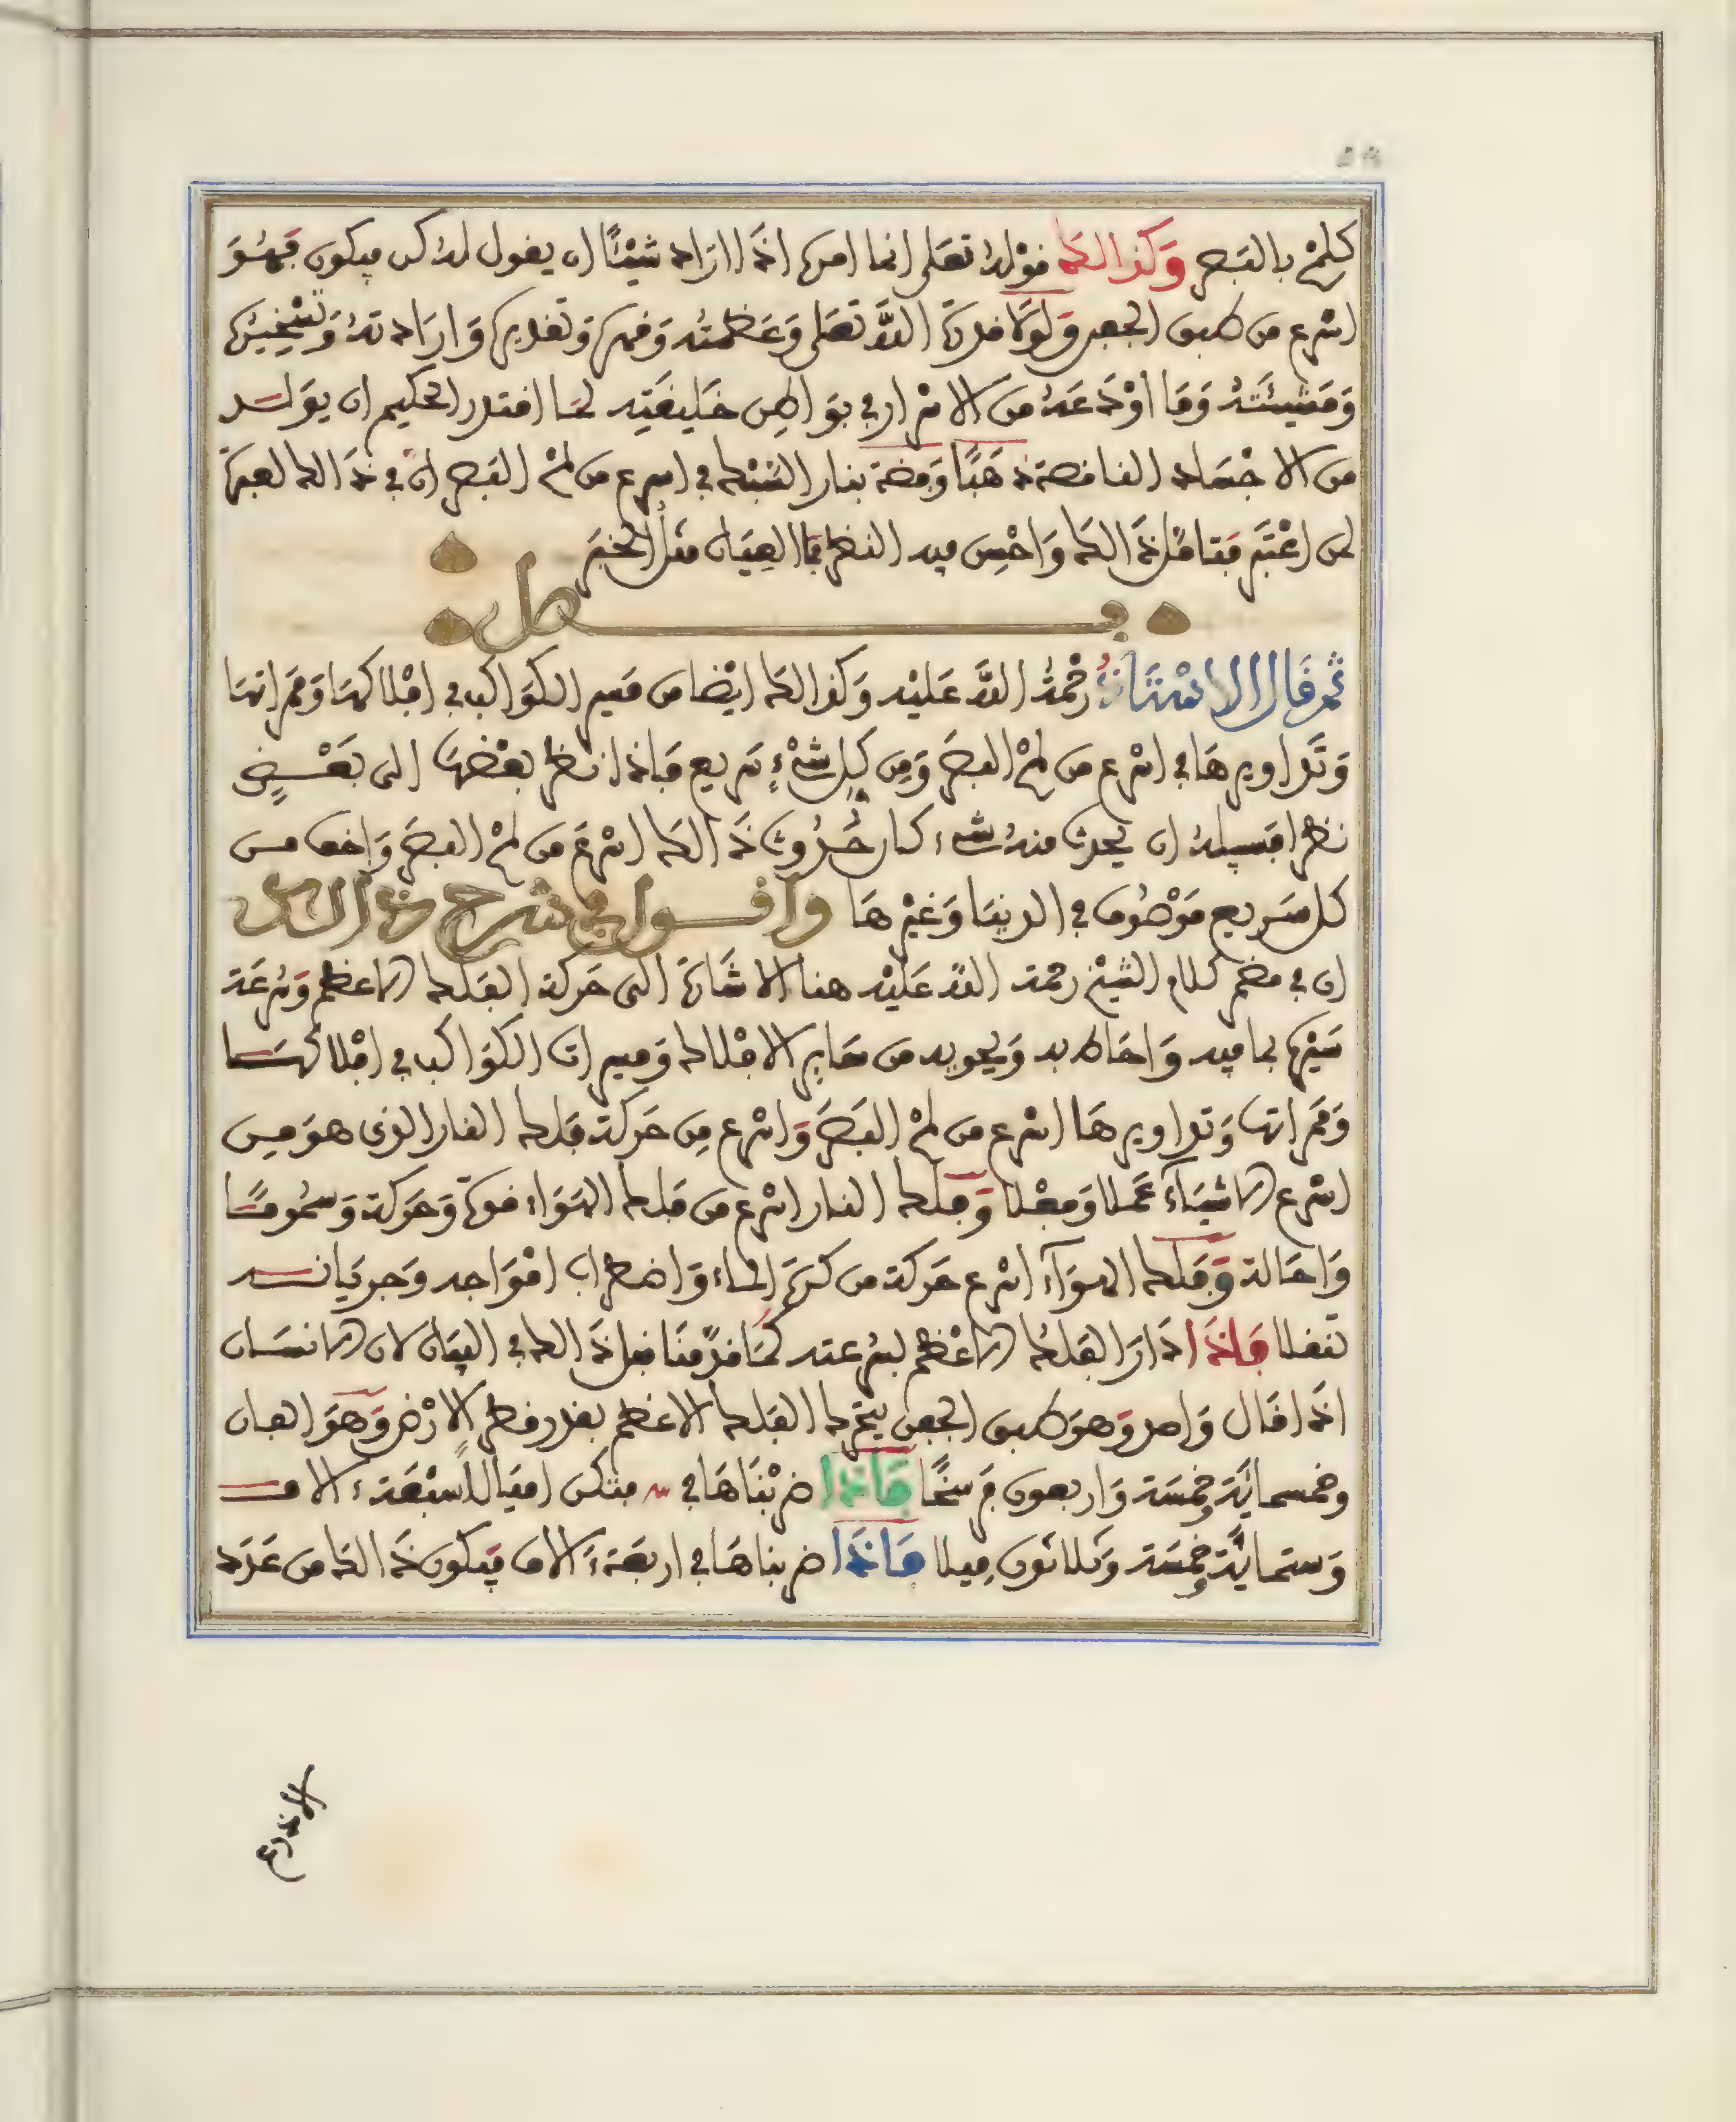 كلمح بالبصر وكذالك قوله تعلى انما امره اذا اراد شيئا ان يقول له كن فيكون فهو
اسرع من طبق الجفن ولولا قدرة الله تعلى وعظمته وقهره وتقديره وارادته وتسخيره
ومشيئته وما اودعه من الاسرار في بواطن خليقته لما اقتدر الحكيم ان يولد
من الاجساد الناقصة ذهبا وفضة بنار السبك في اسرع من لمح البصر ان في ذالك لعبرة
لمن اعتبر فتامل ذالك واحسن فيه النظر فما العيان مثل الخبر
فصل
ثم قال الاستاذ رحمة الله عليه وكذالك ايضا من مسير الكواكب في افلاكها وممراتها
وتداويرها في اسرع من لمح البصر ومن كل شيء سريع فاذا نظر بعضها الى بعض
نظرا فسبيله ان يحدث منه شيء كان حدوث ذالك اسرع من لمح البصر واخف من
كل سريع موصوف في الدنيا وغيرها واقول في شرح هذا ان
ان في مضمر كلام الشيخ رحمة الله عليه هنا الاشارة الى حركة الفلك الاعظم وسرعة
سيره بما فيه واحاط به ويحويه من ساير الافلاك ومسيرات الكواكب في افلاكها
وممراتها وتداويرها اسرع من لمح البصر واسرع من حركة فلك النار الذى هو من
اسرع الاشياء عملا وفعلا وفلك النار اسرع من فلك الهواء قوة وحركة وسموما
واحالة وفلك الهواء اسرع حركة من كرة الماء واضطراب امواجه وجريانه
تنقلا فاذا ادار الفلك الاعظم لسرعته كما قدمنا قبل ذالك في البيان لان الانسان
اذا قال واحد وهو طبق الجفن يتحرك الفلك الاعظم بقدر قطر الارض وهو الفان
وخمسمائة وخمسة واربعون فرسخا فاذا ضربناها في متكن اميالا سبعة ءالاف
وستمائة وخمسة وثلاثون ميلا فاذا ضربناها في اربعة ءالاف فيكون ذالك من عدد
الاذرع